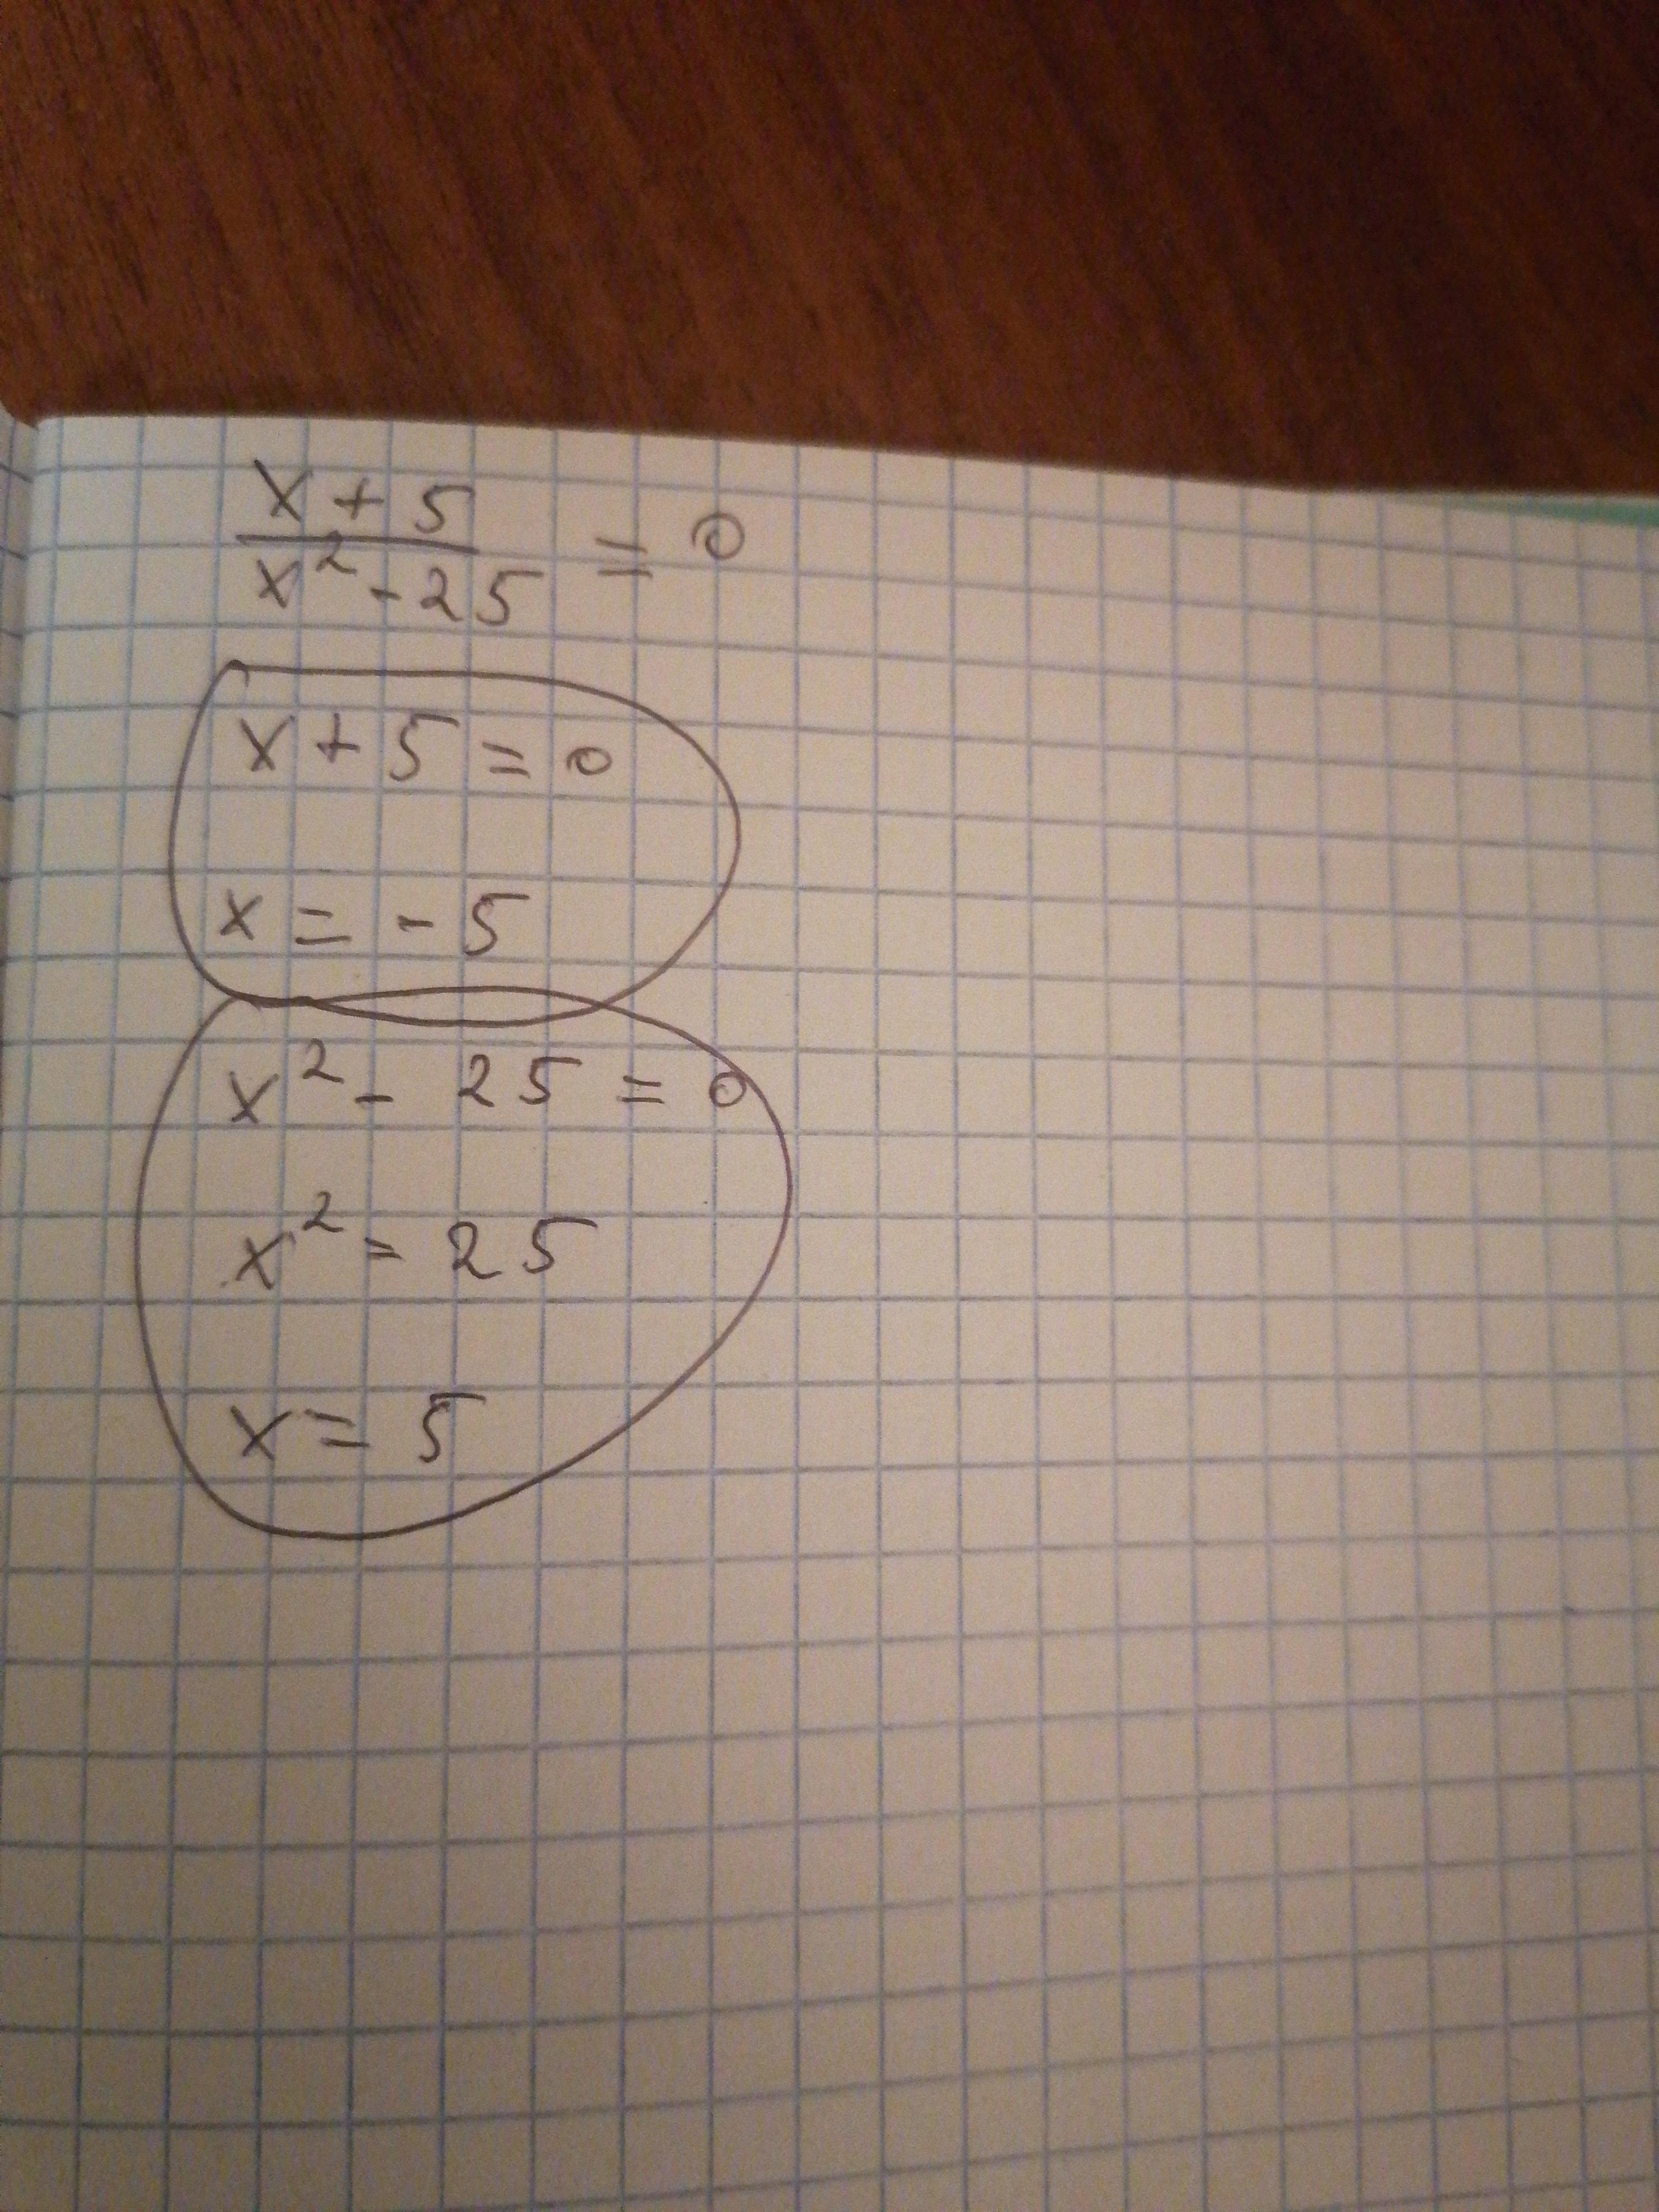 x + 5
x² - 25 = 0
x + 5 = 0
x = - 5
x² - 25 = 0
x² = 25
x = 5